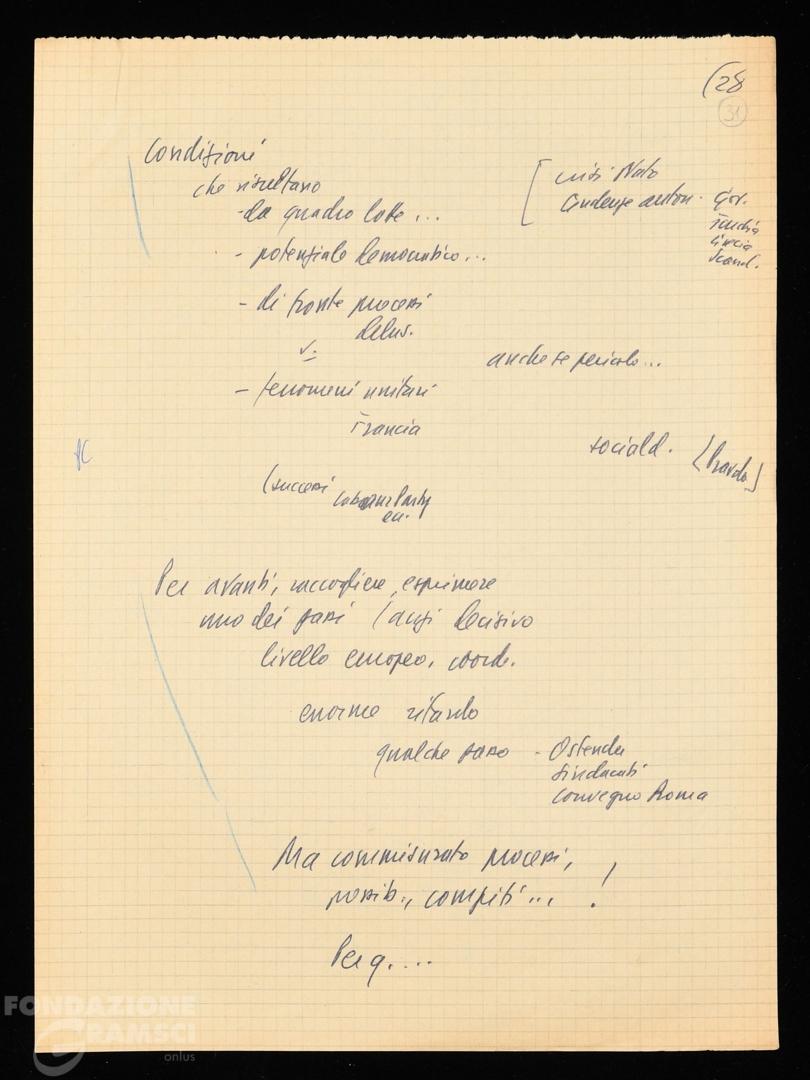 (28
31
Condizioni
che risultano
- da quadro lotte...
- potenziale democratico...
[ crisi Nato
tendenze auton. Gov.
Turchia
Grecia
Scand.
- di fronte processi
v.
anche se pericolo...
- fenomeni unitari
Francia
sociald. [Pravda]
(successi Labour Party
ecc.
Per avanti, raccogliere, esprimere
uno dei passi (anzi decisivo
livello europeo, coord.
enorme ritardo
qualche passo - Ostenda
sindacati
convegno Roma
Ma commisurato processi,
possib., compiti... !
Per q....
FONDAZIONE
GRAMSCI
onlus